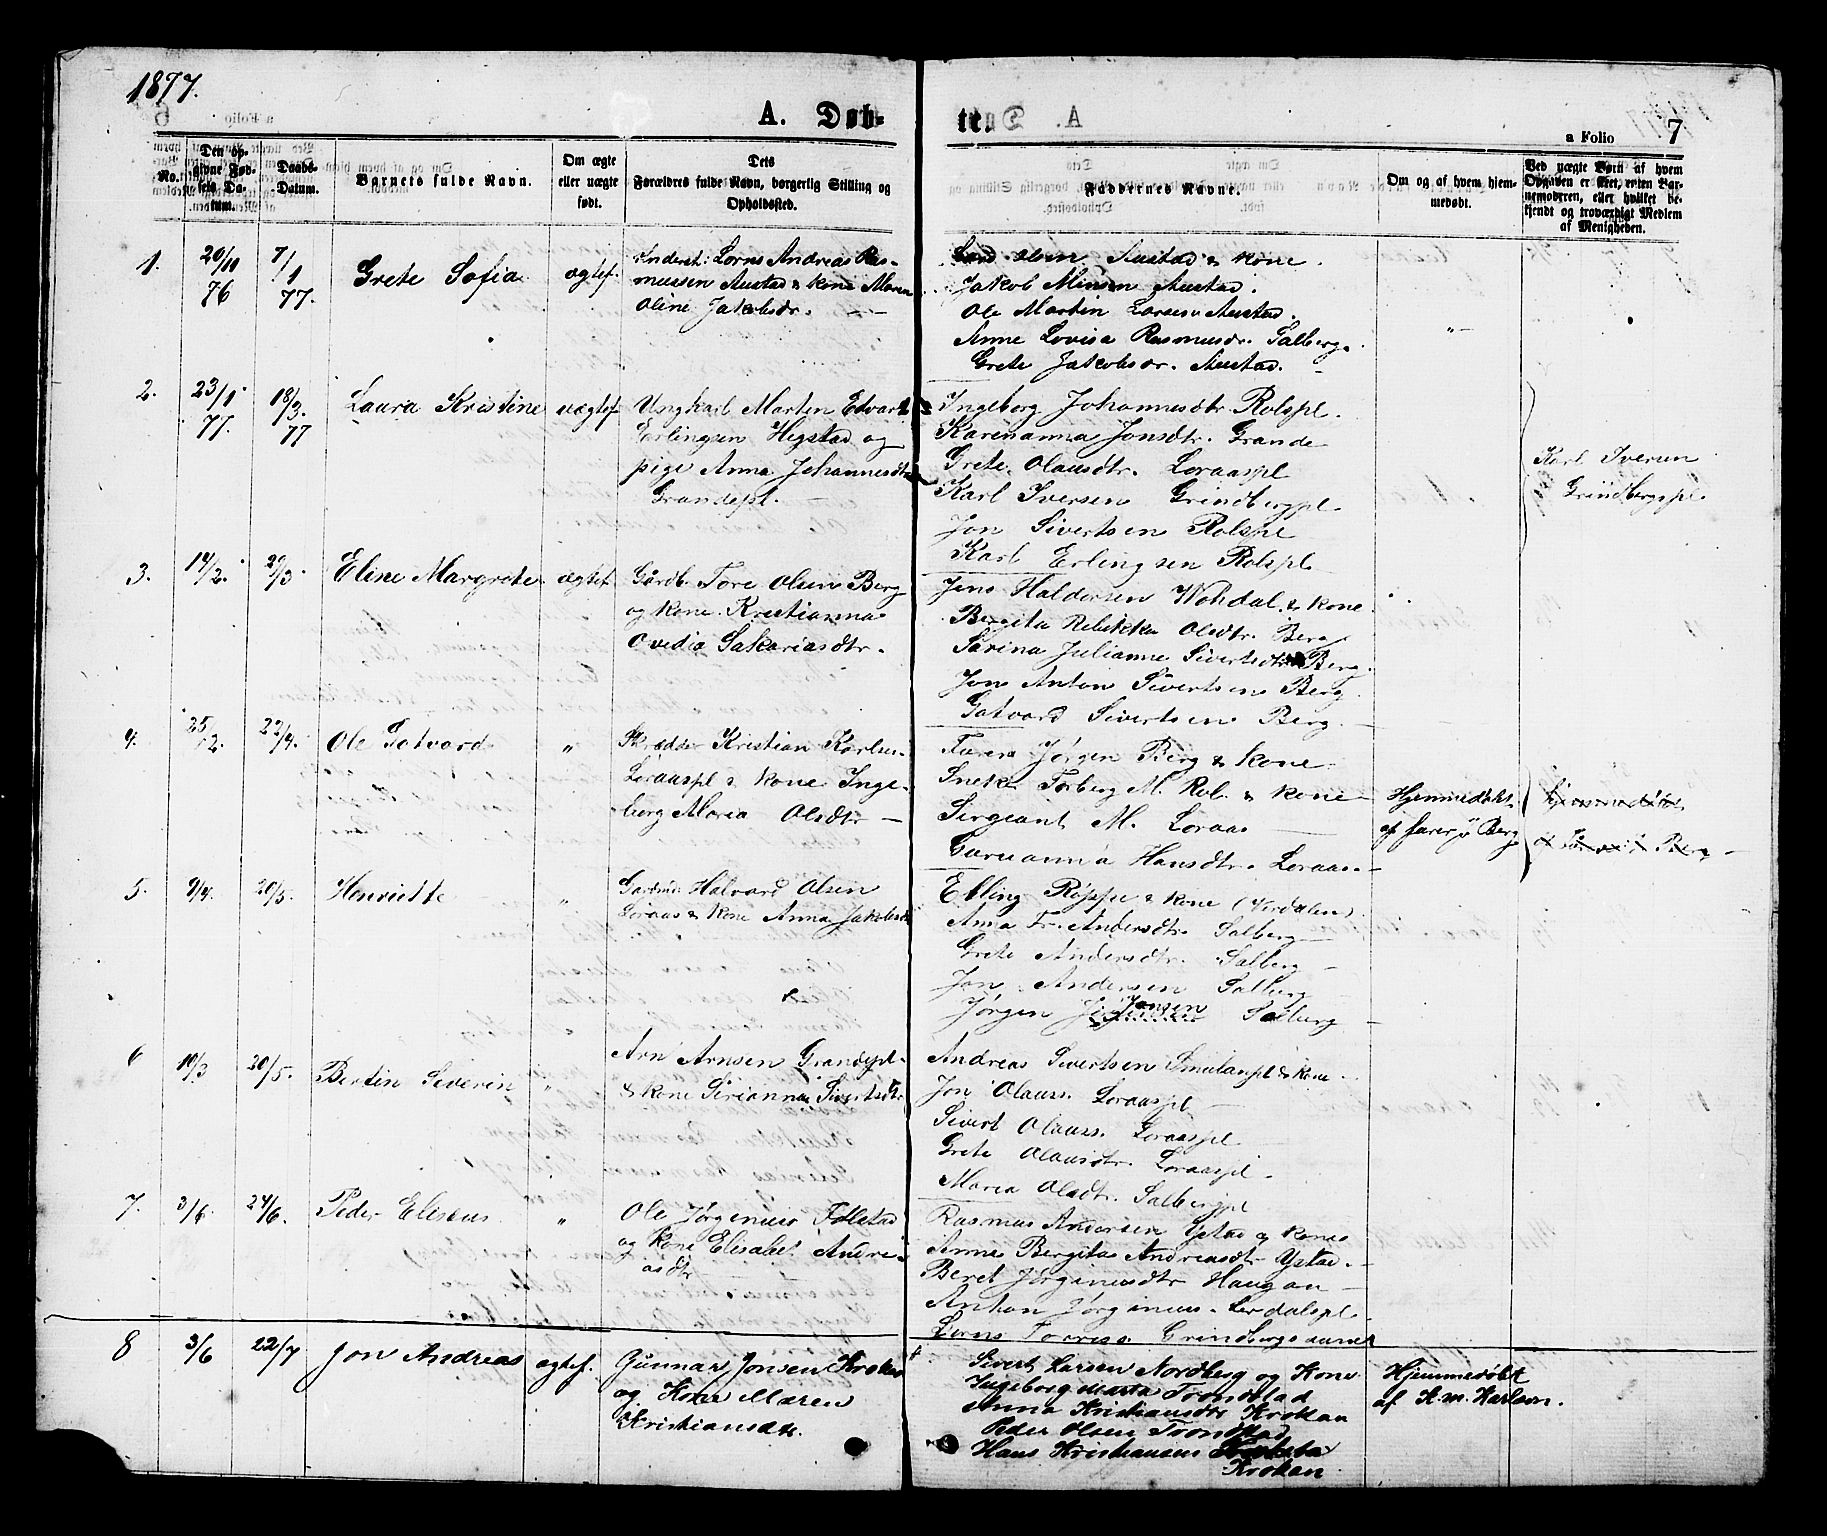 1877.
A. Døb-
te.
a Folio 7
No.
Den op-
givne Fød-
sels Da-
tum.
Daabs-
Datum.
Barnets fulde Navn.
Om ægte
eller uægte
født.
Dets
Forældres fulde Navn, borgerlig Stilling og
Opholdssted.
Faddernes Navne.
Om og af hvem hjem-
medøbt.
Ved uægte Børn af hvem
Opgaven er sket, enten Bar-
nemoderen, eller hvilket be-
kjendt og troværdigt Medlem
af Menigheden.
1.
20/10
76
7/1
77.
Grete Sofia
ægtef.
Inderst: Lorns Andreas Ras-
mussen Austad & kone Maren
Oline Jakobsdr.
Olsen Austad & kone.
Jakob Austad.
Ole Martin Austad.
Anne Lovisa Rasmusdr. Salberg.
Grete Jakobsdr. Austad.
2.
23/1
77.
18/3.
77
Laura Kristine
uægtef.
Ungkarl Marten Edvard
Erlingsen Hegstad og
pige Anna Johannesdtr
Grandepl.
Ingeborg Johannesdtr. Rolspl.
Karenanna Jonsdtr. Grande
Grete Olausdtr. Loraaspl
Karl Iversen Grindbergpl.
Jon Sivertsen Rolspl
Karl Erlingsen Rolspl
Karl Iversen
Grindbergspl.
3.
14/2.
/3.
Eline Margrete
ægtef.
Gårdb. Tore Olsen Berg
og kone Kristianna
Ovedia Sakariasdtr.
Jens Haldorsen Wohdal & kone.
Bergita Rebekka Olsdtr. Berg
Sarina Julianne Sivertsdtr Berg.
Jon Anton Sivertsen Berg.
Gotvard Sivertsen Berg.
4.
25/2.
22/4.
Ole Gotvard
"
Skrædder Kristian Karlsen
Loraaspl & kone Inge-
borg Maria Olsdtr
Jørgen Berg & kone
Torberg M. Rol. & kone
Sergeant M. Loraas
Guruanna Hansdtr. Loraas.
Hjemmedøbt
af Berg
5.
9/4.
20/5.
Henriette
"
Gardm: Halvard Olsen
Loraas & kone Anna Jakobsdr
Elling Røppe & kone (Verdalen)
Anna Fr. Andersdtr. Salberg
Grete Andersdtr. Salberg
Jon Andersen Salberg
Jørgen Jonsen Salberg
6
19/3
20/5.
Bertin Severin
"
Arn Arnsen Grandepl.
& kone Sirianna Sivertsdtr
Andreas Sivertsen & kone.
Jon Olauss. Loraaspl
Sivert Olauss. Loraaspl.
Grete Olausdtr. Loraaspl.
Maria Olsdtr. Salbergpl
7.
3/6.
24/6.
Peder Eliseus
"
Ole Jørgenius Følstad
og kone Elisabet Andre-
asdtr
Rasmus Andersen Ystad & kone
Anne Bergitas Andreasdtr Ystad.
Beret Jørginusdtr Haugan
Anton Jørginus. Lerdalspl.
Lorns Grindbergs aunet
8
3/6
22/7
Jon Andreas
ægtef.
Gunnar Jonsen Krokan
og Kone Maren
Kristiansdtr.
Sivert Larsen Nordberg og Kone
Ingeborg Marta Tronstad
Anna Kristiansdtr Krokan
Peder Olsen Tronstad
Hans Kristiansen
Krokan
Hjemmedøbt
af K.M. Karlsen.